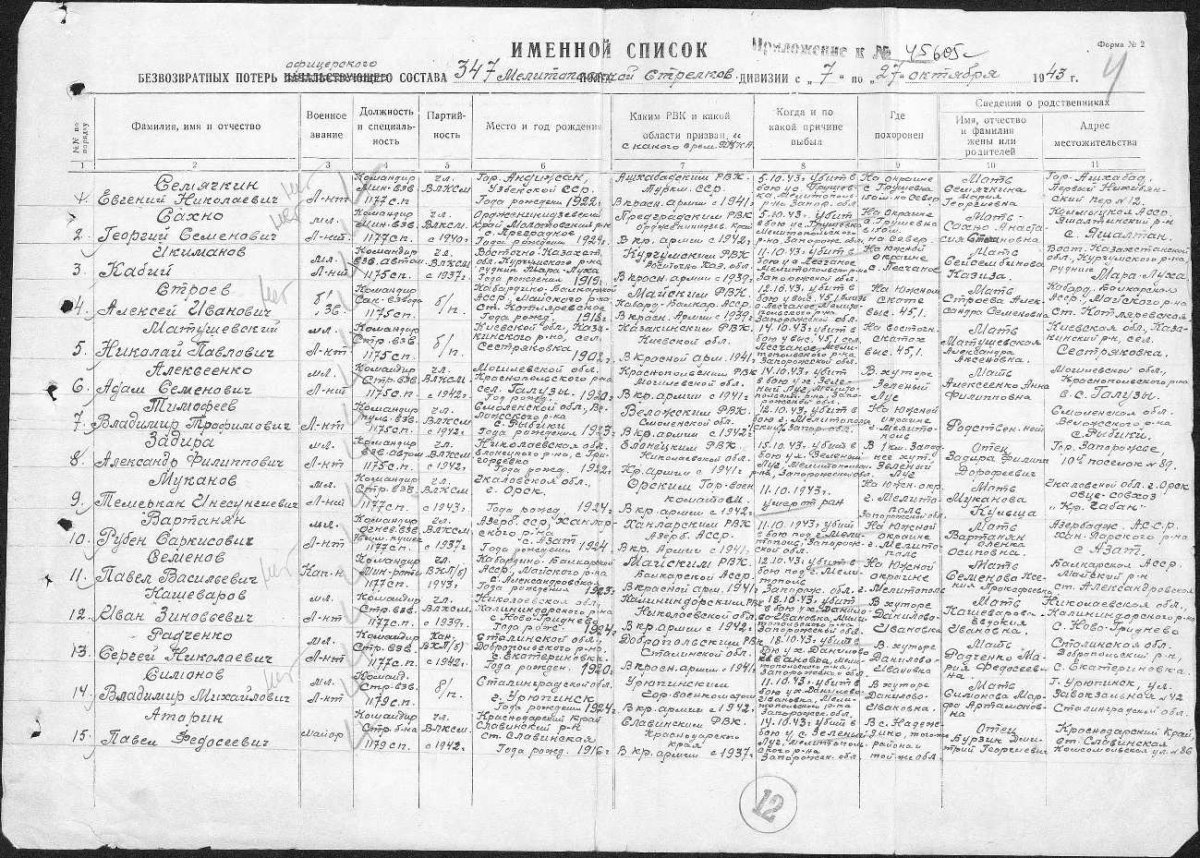 ИМЕННОЙ СПИСОК
Приложение к № 45605с
Форма № 2
4
офицерского
БЕЗВОЗВРАТНЫХ ПОТЕРЬ НАЧАЛЬСТВУЮЩЕГО СОСТАВА 347 Мелитопольской Стрелков. ДИВИЗИИ с „7" по „27" октября 1943 г.
№№ по порядку
Фамилия, имя и отчество
Военное звание
Должность и специальность
Партийность
Место и год рождения
Каким РВК и какой области призван, и с какого врем.
Когда и по какой причине выбыл
Где похоронен
Сведения о родственниках
Имя, отчество и фамилия жены или родителей
Адрес местожительства
1 2 3 4 5 6 7 8 9 10 11
1. Семячкин Евгений Николаевич
Л-нт
Командир Мин. взв. 1177 с.п.
чл. ВЛКСМ
Гор. Андижан, Узбекской ССР. Года рождения 1922г.
Ашхабадским РВК. Туркм. ССР. В красн. армии с 1941г.
5.10.43г. убит в бою
На окраине с. Грушевка
Мать Семячкина Мария Георгиевна
Гор. Ашхабад, Первый
2. Сахно Георгий Семенович
мл. Л-нт
Командир Мин. взв. 1177 с.п.
чл. ВЛКСМ с 1940г.
Орджоникидзевский край Молотовский р-н
Года рождения 1924г.
Преградским РВК Орджоникидз. край В кр. армии с 1942г.
5.10.43г. убит в бою
На окраине с. Грушевка
Мать - Сахно Анастасия Степановна
Калмыцкая Асср, с. Яшалтак
3. Икиманов Кабий
мл. Л-нт
Командир взв. автом. 1175 сп.
чл. ВЛКСМ с 1937г.
Восточно-Казахст. обл. Курчумского р-на рудник Мара-Луха 1919г.
Курчумским РВК В красн. армии с 1939г.
11.10.43г. убит в бою
На Южной окраине с. Песчаное
Мать Казиза.
Вост. Казахстанской обл., Курчумского р-на, рудник Мара-Луха
4. Строев Алексей Иванович
б/зв.
Командир Сан. взвода 1175 с.п.
б/п.
Кабардино-Балкарск. Асср, Майского р-на Ст. Котляревская Года рожд. 1918г.
Майским РВК Кабард.-Балкар. Асср. В красн. Армии с 1939г.
12.10.43г. убит в бою у выс. 45,1
На Южном скате выс. 45,1.
Мать Строева Александра Семеновна
Кабард. Балкарская Асср, Майского р-на Ст. Котляревская
5. Матушевский Николай Павлович
мл. Л-нт
Командир Стр. взв. 1175 с.п.
б/п.
Киевской обл, Сестряковка 1902г.
Киевской обл. В красной арм. 1941г.
14.10.43г. убит в бою у выс. 45,1
На восточн. скатах выс. 45,1.
Мать Матушевская Александра Аксеновна
Киевская обл, Сестряковка.
6. Алексеенко Адам Семенович
мл. Л-нт
Командир Стр. взв. 1175 с.п.
чл. ВЛКСМ с 1942г.
Могилевской обл. Краснопольского р-на сел. Галузы. Год рожд. 1923г.
Краснопольским РВК Могилевской обл. В кр. армии с 1941г.
14.10.43г. убит в бою
В хуторе Зеленый Луг
Мать Алексеенко Анна Филипповна
Могилевской обл., Краснопольского р-на в с. Галузы.
7. Тимофеев Владимир Трофимович
Л-нт
Командир Пул. взв. 1175 с.п.
чл. ВЛКСМ с 1942г.
Смоленской обл., с. Рыбики Года рождения 1923г.
Смоленской обл. В кр. армии с 1942г.
12.10.43г. убит в бою
На Южной окраине г. Мелитополь
Родствен. ной
Смоленской обл. с. Рыбики.
8. Задира Александр Филиппович
мл. Л-нт
Командир взв. автом. 1175 с.п.
чл. ВЛКСМ с 1942г.
Николаевской обл. Еланецкого р-на Года рожд. 1922г.
Еланецким РВК. Николаевской обл. Кр. Армии с 1941г.
15.10.43г. убит в бою
Зеленый Луг
Отец Задира Филипп Дорофеевич
Гор. Запорожье 10й поселок № 89.
9. Муканов
мл. Л-нт
Командир Стр. взв. 1177 с.п.
чл. ВЛКСМ с 1943г.
Чкаловской обл., г. Орск. Года рожд. 1924г.
Орским Гор-военкоматом. В кр. армии с 1942г.
11.10.1943г. умер от ран
На Южн. окр. г. Мелитополь
Мать Муканова
Чкаловской обл. г. Орск овце-совхоз „Кр. Чабан"
10. Вартанян Рубен Саркисович
мл. Л-нт
Командир 1177 с.п.
чл. ВЛКСМ. с 1937г.
Азерб. ССР, Ханларского р-на с. Азат. Года рождения 1924
Ханларским РВК Азерб. Асср. В кр. Армии с 1941г.
11.10.1943г. убит в бою под г. Мелитополь, Запорожской обл.
На Южной окраине г. Мелитополь
Мать Вартанян Осиповна.
Азербайдж. А.С.С.Р. Хан-Ларского р-на с. Азат.
11. Семенов Павел Васильевич
Кап-н
Командир Мин-роты 1177 сп.
чл. ВКП/б/ 1943г.
Кабардино-Балкарской Асср, Майского р-на с. Александровская Года рождения 1923г.
Майским РВК. Балкарской Асср. В красн. Армии 1941г.
12.10.43г. убит в бою под г. Мелитополь Запорож. обл.
На Южной окраине г. Мелитополь
Мать Семенова Прокофьевна
Балкарская Асср Майский р-н ст. Александровская
12. Кашеваров Иван Зиновьевич
мл. Л-нт
Командир Стр. взв. 1177 с.п.
чл. ВЛКСМ. с 1939г.
Николаевская обл, Калининдорского р-на с. Ново-Гриднево Года рожд. 1924г.
Калининдорским РВК Николаевской обл. В кр. армии с 1942г.
18.10.43г. убит в бою у х. Данилово-Ивановка
В хуторе Данилово-Ивановка
Мать Кашеварова Евдокия Ивановна.
Николаевская обл., Калининдорского р-на с. Ново-Гриднево
13. Радченко Сергей Николаевич
мл. Л-нт
Командир Стр. взв. 1177 с.п.
Кан. ВКП/б/ с 1942г.
Сталинской обл. Добропольского р-на. г. Екатериновка. Года рожден. 1920г.
Добропольским РВК Сталинской обл. В красн. арм. с 1941г.
18.10.43г. убит в бою у х. Данилово-Ивановка
В хуторе Данилово-Ивановка
Мать Радченко Мария Федосеевна
Сталинская обл. Добропольский р-н, с. Екатериновка.
14. Симонов Владимир Михайлович
мл. Л-нт
Команд. Стр. взв. 1179 с.п.
б/п.
Сталинградской обл. г. Урюпинск Года рождения 1924г.
Урюпинским Гор-военкоматом В кр. армии с 1942г.
11.10.43г. убит в бою у х. Данилово-Ивановка
В хуторе Данилово-Ивановка.
Мать Симонова Марфа Артамоновна
г. Урюпинск, ул. Привокзальная №42 Сталинградской обл.
15. Атарин Павел Федосеевич
майор
Командир Стр. б-на 1179 с.п.
чл. ВЛКСМ. с 1942г.
Краснодарский край Славинский р-н ст. Славинская Года рожд. 1916г.
Славинским РВК. Краснодарского края В кр. армии с 1937г.
14.10.43г. убит в бою у с. Зеленый Луг, Мелитопольского р-на Запорожск. обл.
В с. Надеждино, того же района и той же обл.
Отец Бурзин Дмитрий Георгиевич
Краснодарский Край, ст. Славинская Комсомольская ул. №86
12